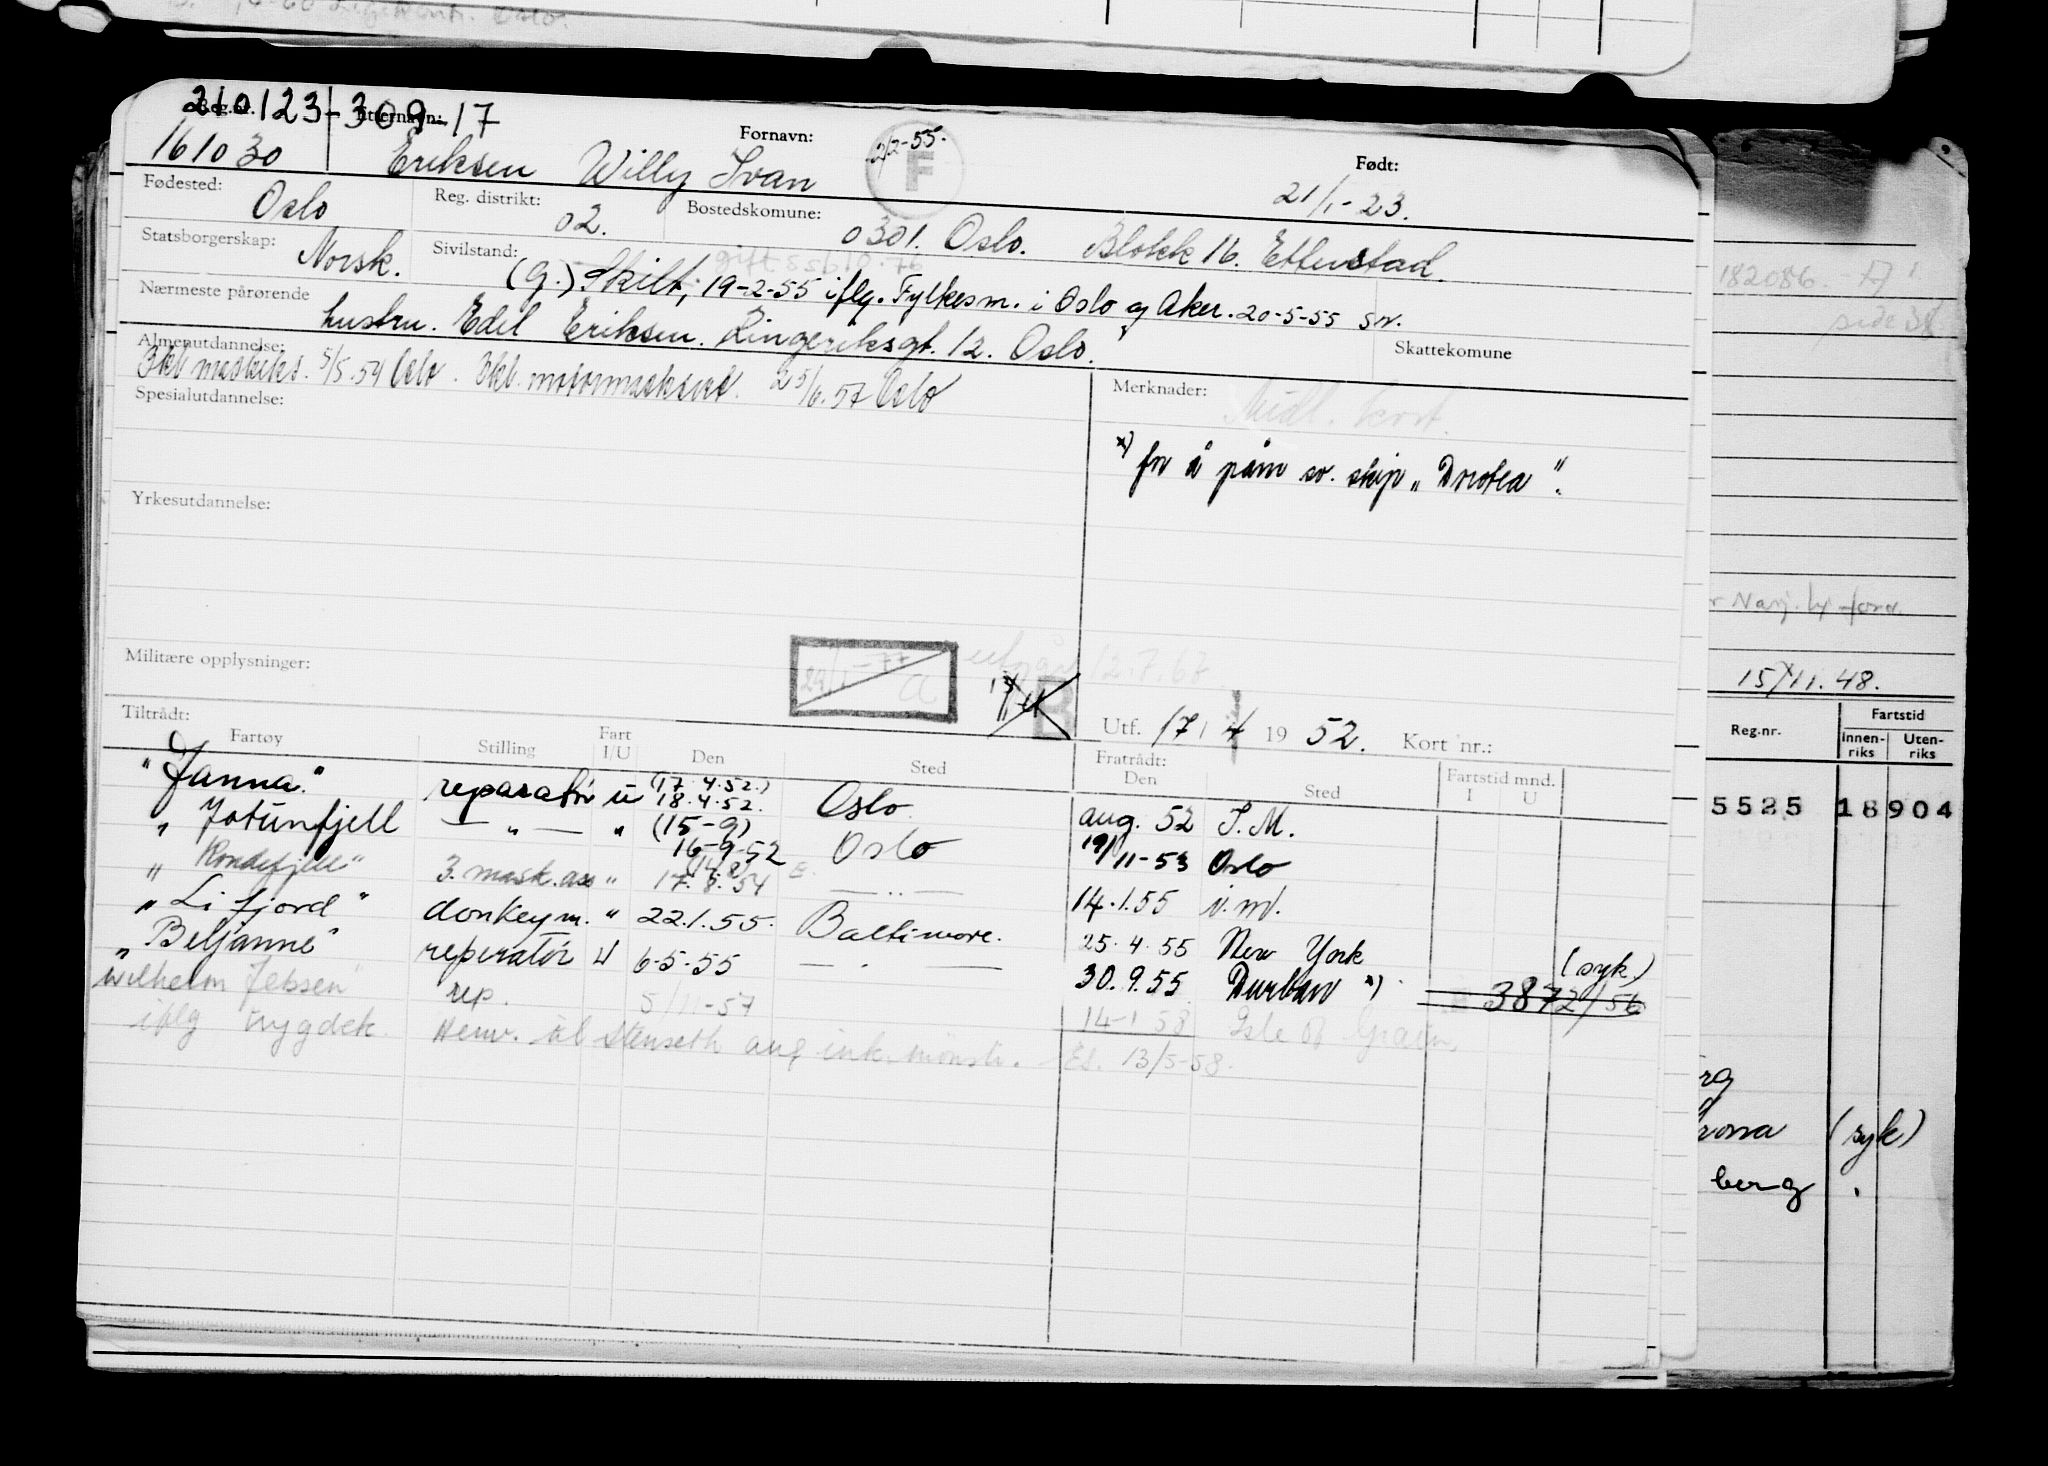 210123-309-17
Reg.nr. Etternavn: Fornavn: Født:
161030 Eriksen Willy Ivan 2/2-55. F 21/1-23.
Fødested: Oslo Reg. distrikt: 02. Bostedskomune: 0301. Oslo. Blokk 16. Etterstad.
Statsborgerskap: Norsk. Sivilstand: (G.) Skilt, 19-2-55 iflg. Fylkesm. i Oslo og Aker. 20-5-55 sn.
Nærmeste pårørende hustru. Edel Eriksen. Ringeriksgt. 12. Oslo. Skattekomune
Almenutdannelse: 3kl maskiks. 5/5.54 Oslo. 3kl. motormaskist. 25/6.57 Oslo
Spesialutdannelse: Merknader: Midl. kort.
x) for å påm sv. skip „Drotea".
Yrkesutdannelse:
Militære opplysninger: 12.7.67
Utf. 17/4 1952. Kort nr.:
Tiltrådt: Fratrådt:
Fartøy Stilling Fart I/U Den Sted Den Sted Fartstid mnd. I U
"Janna." reparatør u (17.4.52.) 18.4.52. Oslo. aug. 52 S.M.
„ Jotunfjell — „ — „ (15-9) 16-9-52 Oslo 19/11-53 Oslo
„ Rondefjell" 3. mask.ass „ 17.8.54 — „ — 14.1.55 i.m.
„ Li fjord" donkeym. „ 22.1.55. Baltimore. 25.4.55 New York (syk)
„ Beljanne" reperatør U 6-5-55 — „ — 30.9.55 Durban x) 3872/56
Wilhelm Jebsen" rep. 5/11-57 14-1 58 Isle of Grain,
iflg trygdek. Henv. til Stenseth ang ink. mønstr. Es. 13/5-58.
182086.
side 38
15/11.48.
Reg.nr. Fartstid
Innen-riks Uten-riks
5525 18904
(syk)
berg